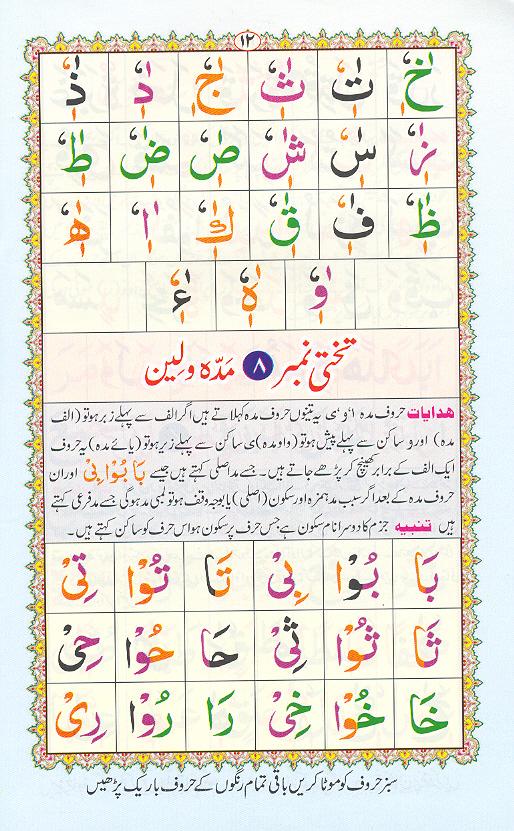 ۱۲
خٰٖٗ تٰٖٗ ثٰٖٗ جٰٖٗ دٰٖٗ ذٰٖٗ
زٰٖٗ سٰٖٗ شٰٖٗ صٰٖٗ ضٰٖٗ طٰٖٗ
ظٰٖٗ فٰٖٗ قٰٖٗ كٰٖٗ اٰٖٗ ھٰٖٗ
وٰٖٗ هٰٖٗ ءٰٖٗ
تختی نمبر ۸ مَدّہ و لین
ھدایات حروف مدہ ا ، و ، ی یہ تینوں حروف مدہ کہلاتے ہیں اگر الف سے پہلے زبر ہو تو (الف
مدہ) اور و ساکن سے پہلے پیش ہو تو (واو مدہ) ی ساکن سے پہلے زیر ہو تو (یائے مدہ) یہ حروف
ایک الف کے برابر کھینچ کر پڑھے جاتے ہیں۔ جسے مد اصلی کہتے ہیں جیسے بَا بُوْا بِیْ اور ان
حروف مدہ کے بعد اگر سبب مد ہمزہ اور سکون (اصلی) یا بوجہ وقف ہو تو لمبی مد ہوگی جسے مد فرعی کہتے
ہیں تنبیہ جزم کا دوسرا نام سکون ہے جس حرف پر سکون ہو اس حرف کو ساکن کہتے ہیں۔
بَا بُوْا بِیْ تَا تُوْا تِیْ
ثَا ثُوْا ثِیْ حَا حُوْا حِیْ
خَا خُوْا خِیْ رَا رُوْا رِیْ
سبز حروف کو موٹا کریں باقی تمام رنگوں کے حروف باریک پڑھیں